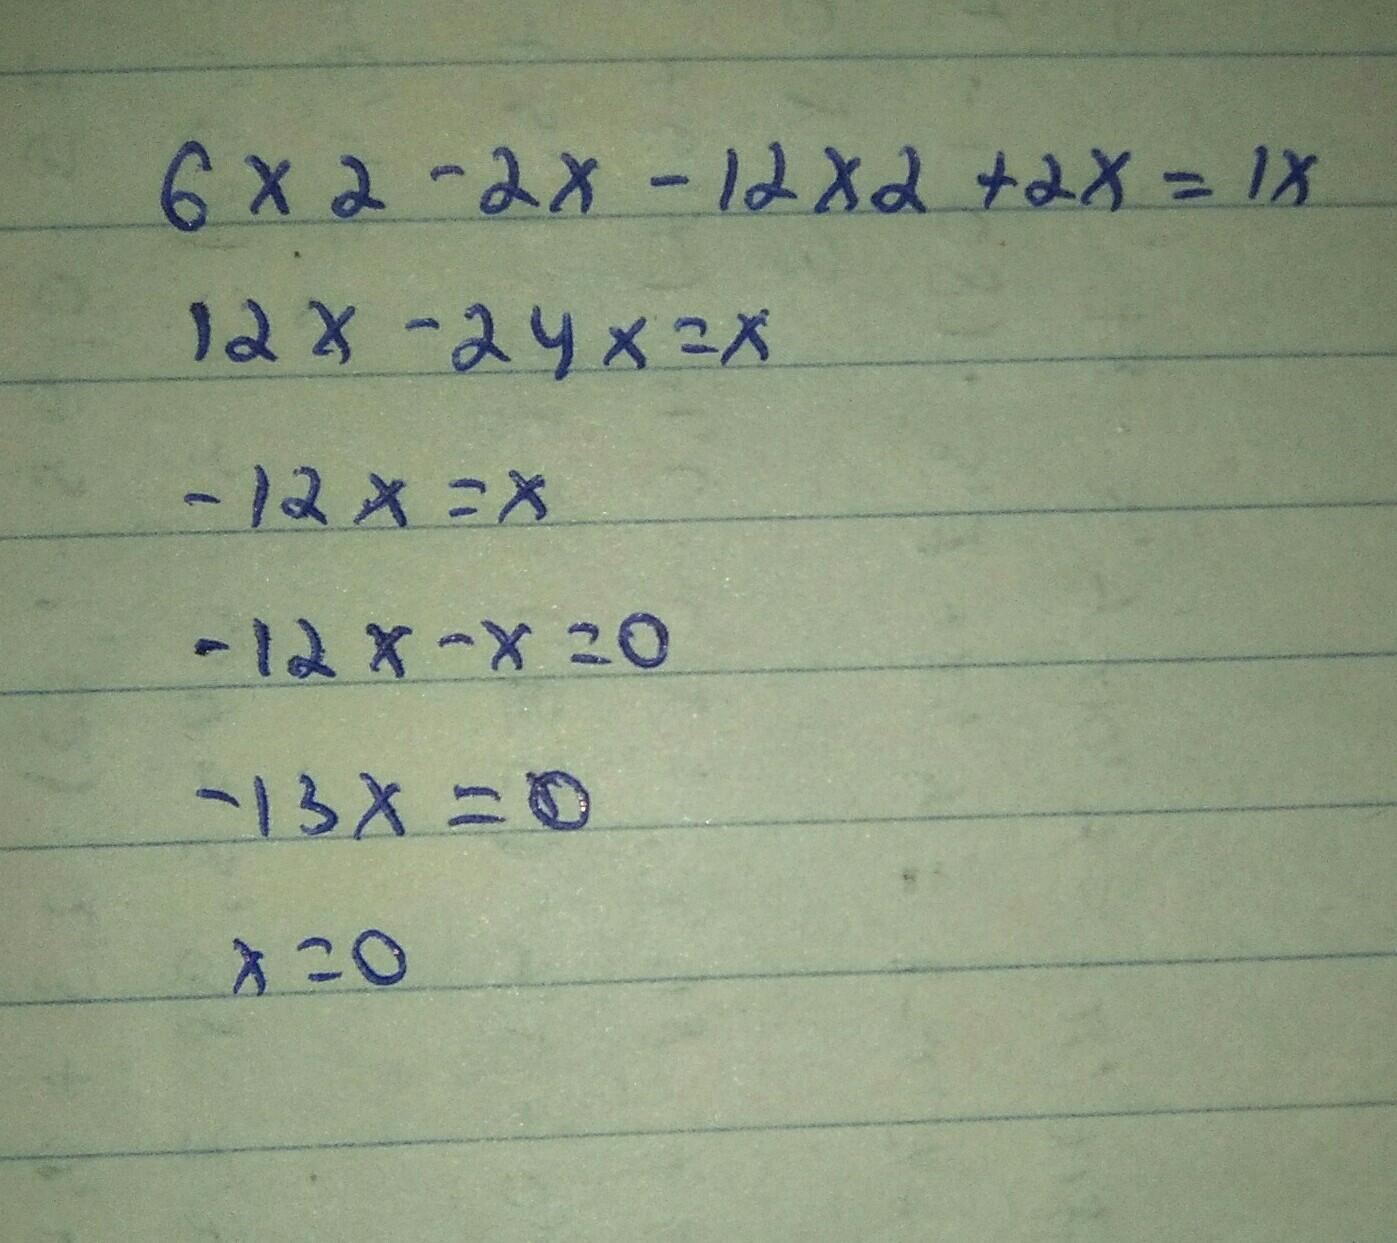 6x2-2x-12x2+2x=1x
12x-24x=x
-12x=x
-12x-x=0
-13x=0
x=0